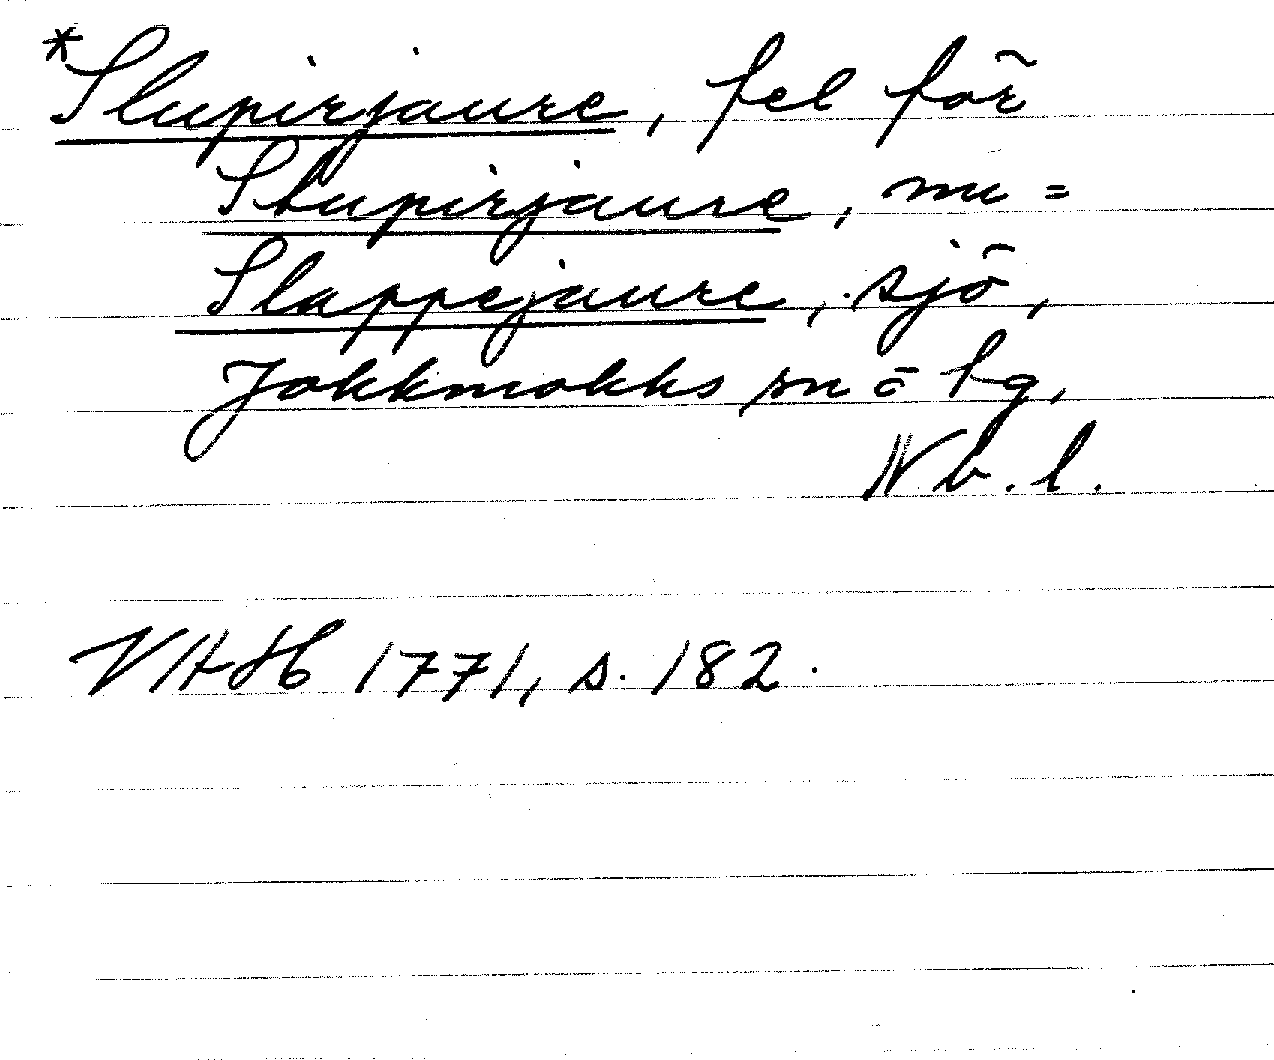 *Slupirjaure, fel för
Skupirjaure, nu =
Slappejaure, sjö,
Jokkmokks sn o lg,
Nb. l.
VHAH 1771, s. 182.